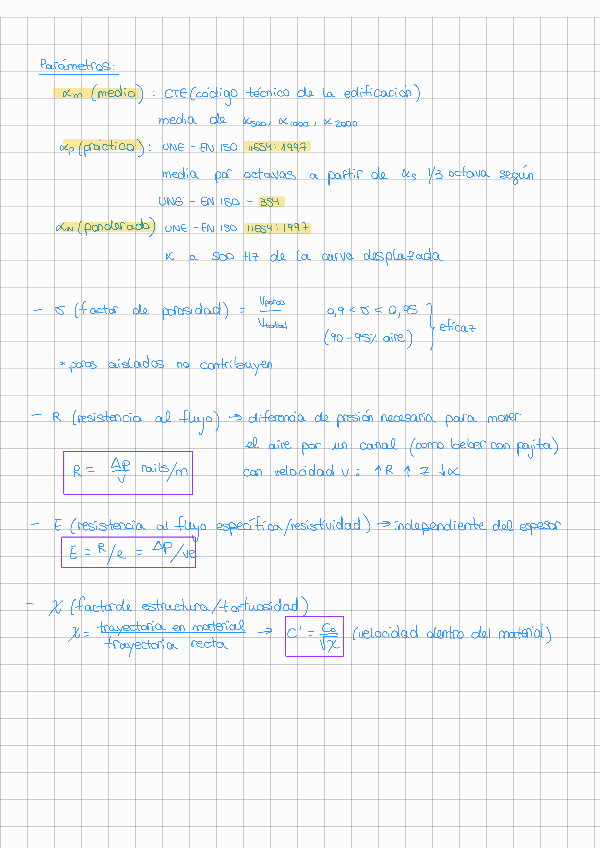 Parámetros:
αm (medio) : CTE (código técnico de la edificación)
media de α500, α1000, α2000
αp (práctico) : UNE - EN ISO 11654:1997
media por octavas a partir de αs 1/3 octava según
UNE - EN ISO - 354
αw (ponderado) UNE - EN ISO 11654:1997
α a 500 Hz de la curva desplazada
- σ (factor de porosidad) = Vporos/Vtotal 0,9 < σ < 0,95 } eficaz
(90-95% aire)
* poros aislados no contribuyen
- R (resistencia al flujo) → diferencia de presión necesaria para mover
el aire por un canal (como beber con pajita)
R = Δp/v rails/m con velocidad v: ↑R ↑Z ↓α
- E (resistencia al flujo específica/resistividad) → independiente del espesor
E = R/e = Δp/ve
- χ (factor de estructura/tortuosidad)
χ = trayectoria en material/trayectoria recta → C' = C₀/√χ (velocidad dentro del material)